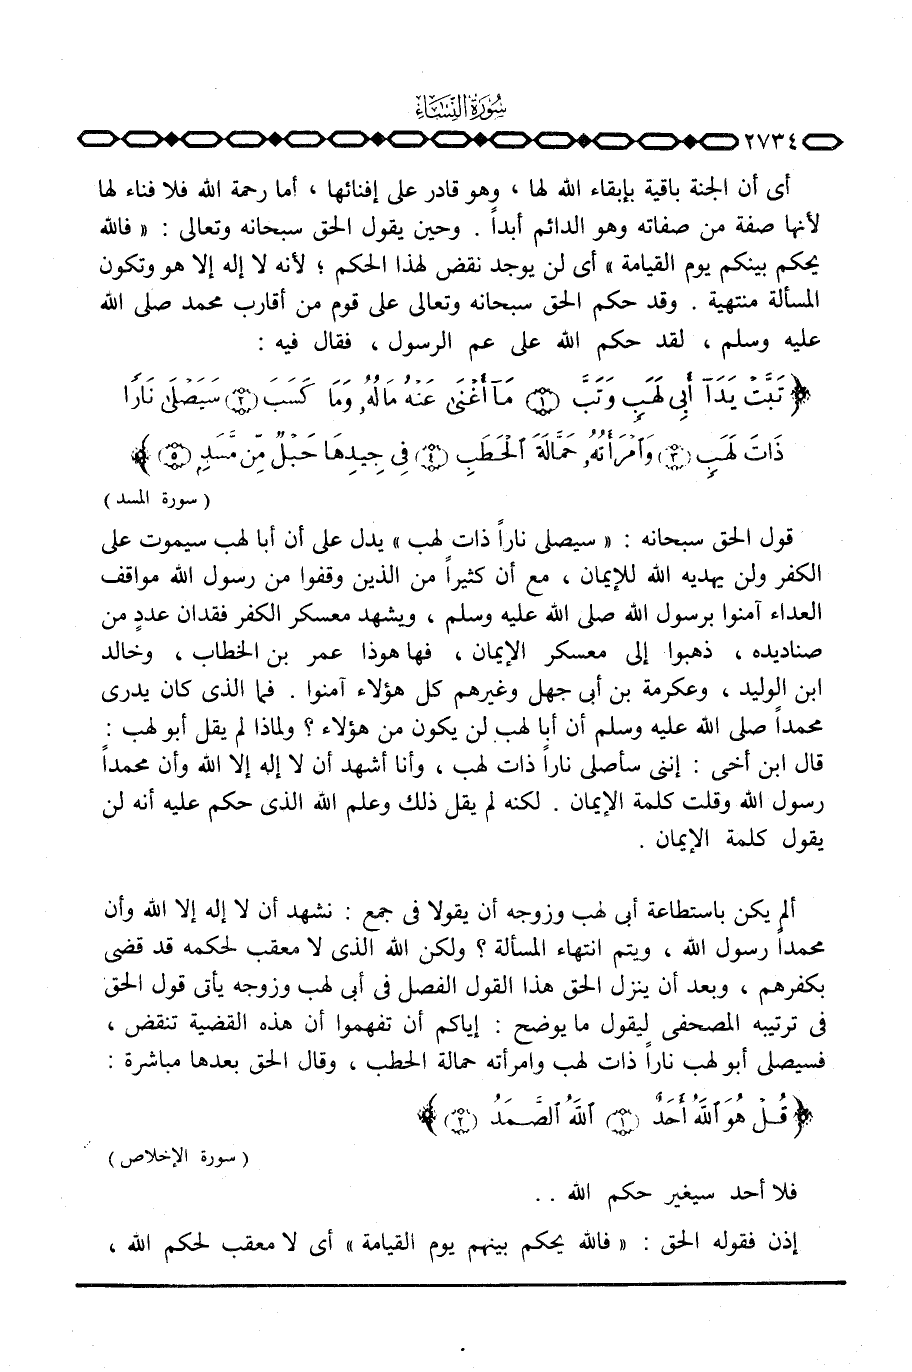 سُورَةُ النِّسَاءِ
٢٧٣٤
أى أن الجنة باقية بإبقاء الله لها ، وهو قادر على إفنائها ، أما رحمة الله فلا فناء لها
لأنها صفة من صفاته وهو الدائم أبداً . وحين يقول الحق سبحانه وتعالى : « فالله
يحكم بينكم يوم القيامة » أى لن يوجد نقض لهذا الحكم ؛ لأنه لا إله إلا هو وتكون
المسألة منتهية . وقد حكم الحق سبحانه وتعالى على قوم من أقارب محمد صلى الله
عليه وسلم ، لقد حكم الله على عم الرسول ، فقال فيه :
﴿ تَبَّتْ يَدَآ أَبِى لَهَبٍ وَتَبَّ ۝١ مَآ أَغْنَىٰ عَنْهُ مَالُهُۥ وَمَا كَسَبَ ۝٢ سَيَصْلَىٰ نَارًا
ذَاتَ لَهَبٍ ۝٣ وَٱمْرَأَتُهُۥ حَمَّالَةَ ٱلْحَطَبِ ۝٤ فِى جِيدِهَا حَبْلٌ مِّن مَّسَدٍۭ ۝٥ ﴾
( سورة المسد )
قول الحق سبحانه : « سيصلى ناراً ذات لهب » يدل على أن أبا لهب سيموت على
الكفر ولن يهديه الله للإيمان ، مع أن كثيراً من الذين وقفوا من رسول الله مواقف
العداء آمنوا برسول الله صلى الله عليه وسلم ، ويشهد معسكر الكفر فقدان عددٍ من
صناديده ، ذهبوا إلى معسكر الإيمان ، فها هوذا عمر بن الخطاب ، وخالد
ابن الوليد ، وعكرمة بن أبى جهل وغيرهم كل هؤلاء آمنوا . فما الذى كان يدرى
محمداً صلى الله عليه وسلم أن أبا لهب لن يكون من هؤلاء ؟ ولماذا لم يقل أبو لهب :
قال ابن أخى : إننى سأصلى ناراً ذات لهب ، وأنا أشهد أن لا إله إلا الله وأن محمداً
رسول الله وقلت كلمة الإيمان . لكنه لم يقل ذلك وعلم الله الذى حكم عليه أنه لن
يقول كلمة الإيمان .
ألم يكن باستطاعة أبى لهب وزوجه أن يقولا فى جمع : نشهد أن لا إله إلا الله وأن
محمداً رسول الله ، ويتم انتهاء المسألة ؟ ولكن الله الذى لا معقب لحكمه قد قضى
بكفرهم ، وبعد أن ينزل الحق هذا القول الفصل فى أبى لهب وزوجه يأتى قول الحق
فى ترتيبه المصحفى ليقول ما يوضح : إياكم أن تفهموا أن هذه القضية تنقض ،
فسيصلى أبو لهب ناراً ذات لهب وامرأته حمالة الحطب ، وقال الحق بعدها مباشرة :
﴿ قُلْ هُوَ ٱللَّهُ أَحَدٌ ۝١ ٱللَّهُ ٱلصَّمَدُ ۝٢ ﴾
( سورة الإخلاص )
فلا أحد سيغير حكم الله . .
إذن فقوله الحق : « فالله يحكم بينهم يوم القيامة » أى لا معقب لحكم الله ،